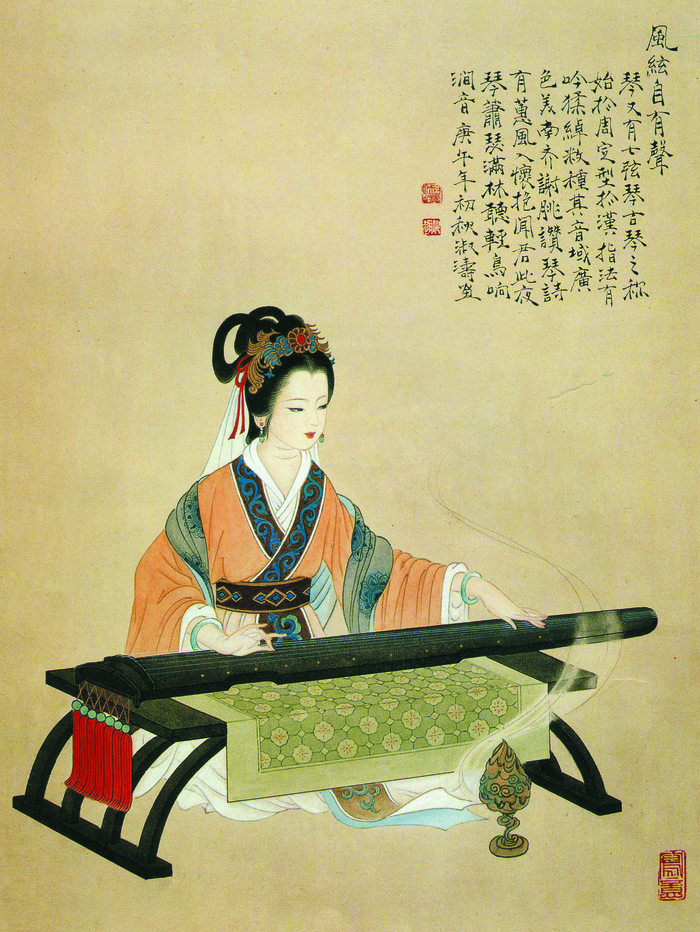 風絃自有聲
琴又有七弦琴古琴之称
始扵周定型扵漢指法有
吟猱綽数種其音域廣
色美南齐謝朓讚琴詩
有蕙風入懷抱聞君此夜
琴蕭瑟滿林聽輕鳥响
澗音 庚午年初秋淑濤